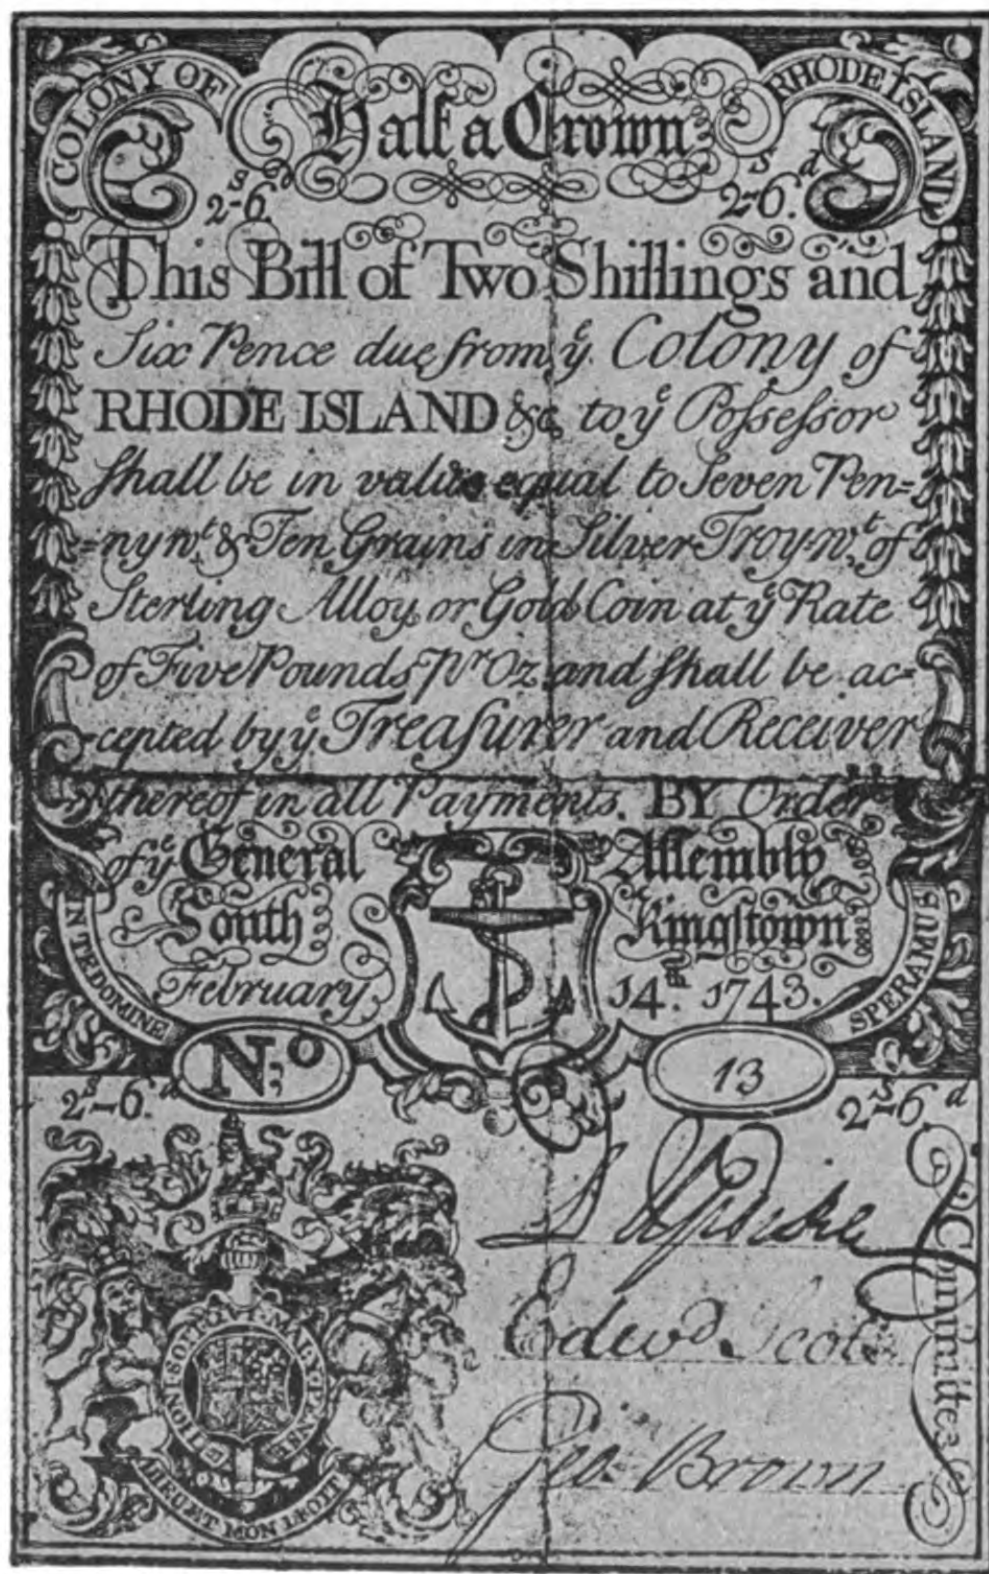 COLONY OF RHODE ISLAND
Half a Crown
2ˢ-6ᵈ 2ˢ-6.ᵈ
This Bill of Two Shillings and
Six Pence due from yᵉ Colony of
RHODE ISLAND &c, to yᵉ Poſseſsor
ſhall be in value equal to Seven Pen=
=nywᵗ & Ten Grains in Silver Troy=Wᵗ. of
Sterling Alloy, or Gold Coin at yᵉ Rate
of Five Pounds Pʳ Oz. and ſhall be ac=
cepted by yᵉ Treaſurer and Receiver
thereof in all Payments. BY Order
of yᵉ General Aſſembly
South Kingſtown
February 14ᵗʰ. 1743.
IN TE DOMINE SPERAMUS
N;º 13
2ˢ-6.ᵈ 2ˢ-6ᵈ
Edwᵈ Scott
Geo: Brown
Committee
HONI SOIT QUI MAL Y PENSE
DIEU ET MON DROIT